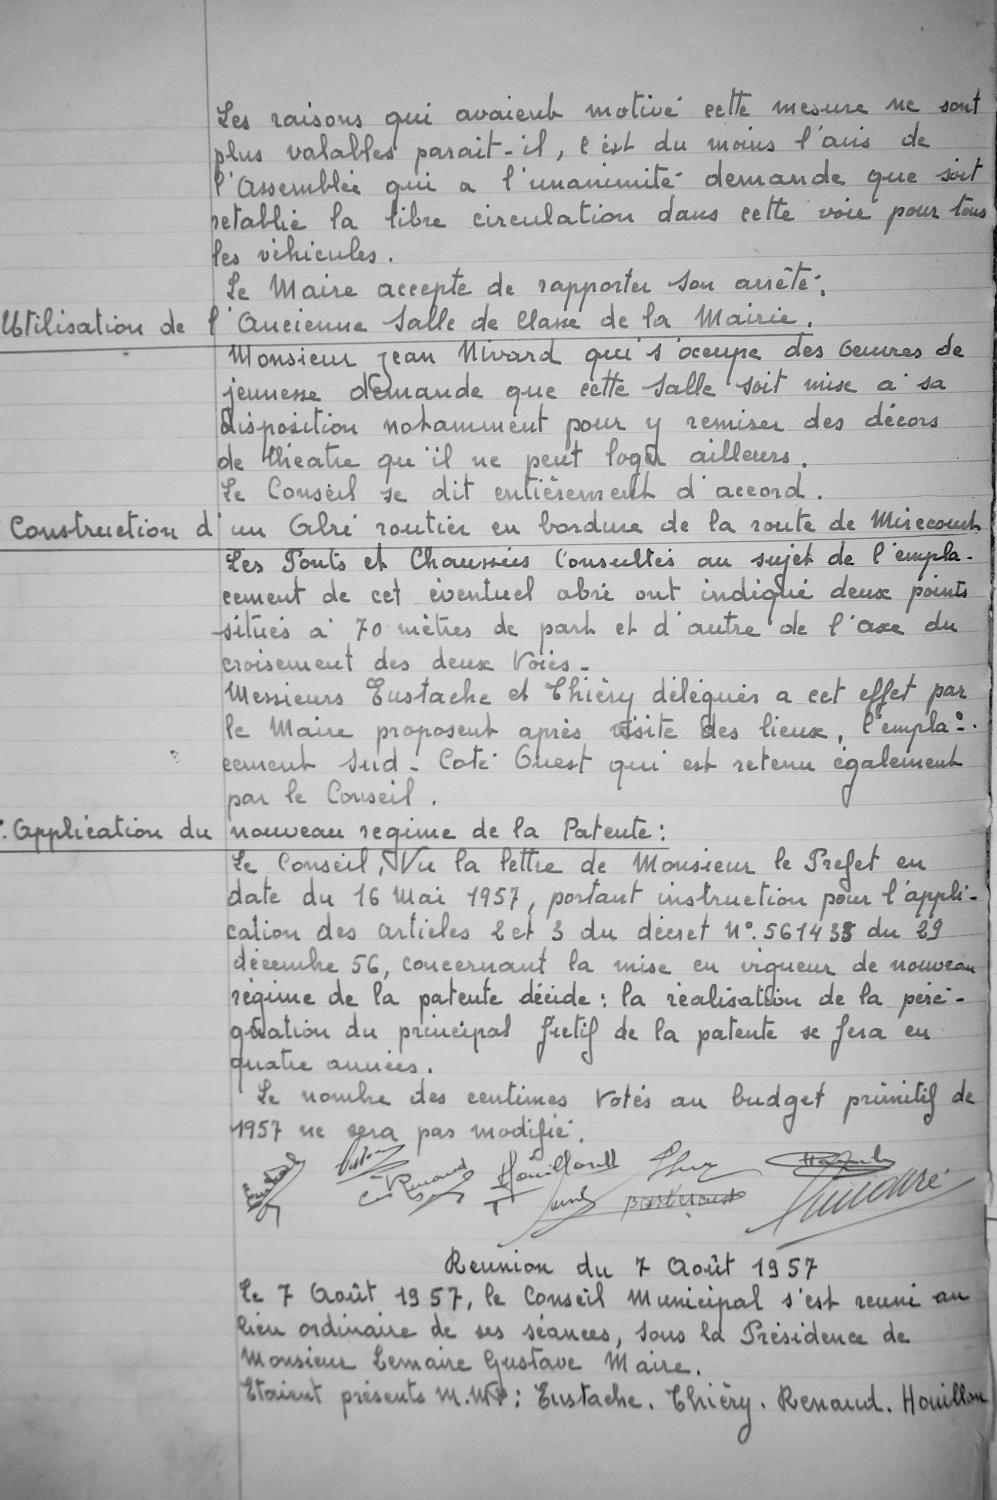 Les raisons qui avaient motivé cette mesure ne sont
plus valables parait-il, c'est du moins l'avis de
l'Assemblée qui a l'unanimité demande que soit
retablie la libre circulation dans cette voie pour tous
les véhicules.
Le Maire accepte de rapporter son arrêté.
Utilisation de l'Ancienne Salle de Classe de la Mairie.
Monsieur Jean Nivard qui s'occupe des Oeuvres de
jeunesse demande que cette Salle soit mise à sa
disposition notamment pour y remiser des décors
de théatre qu'il ne peut loger ailleurs.
Le Conseil se dit entièrement d'accord.
Construction d'un Abri routier en bordure de la route de Mirecourt
Les Ponts et Chaussées Consultés au sujet de l'empla-
cement de cet éventuel abri ont indiqué deux points
situés à 70 mètres de part et d'autre de l'axe du
croisement des deux Voies-
Messieurs Eustache et Thiéry délégués a cet effet par
le Maire proposent après visite des lieux, l'empla-
cement Sud-Coté Ouest qui est retenu également
par le Conseil.
Application du nouveau regime de la Patente:
Le Conseil, Vu la lettre de Monsieur le Prefet en
date du 16 Mai 1957, portant instruction pour l'appli-
cation des articles 2 et 3 du décret N°. 561433 du 29
décembre 56, concernant la mise en vigueur de nouveau
régime de la patente décide: la réalisation de la péré-
quation du principal fictif de la patente se fera en
quatre années.
Le nombre des centimes Votés au budget primitif de
1957 ne sera pas modifié.
Renaud Houillon
Reunion du 7 Août 1957
Le 7 Août 1957, le Conseil Municipal s'est reuni au
lieu ordinaire de ses séances, sous la Présidence de
Monsieur Lemaire Gustave Maire.
Etaient présents M.M: Eustache. Thiéry. Renaud. Houillon